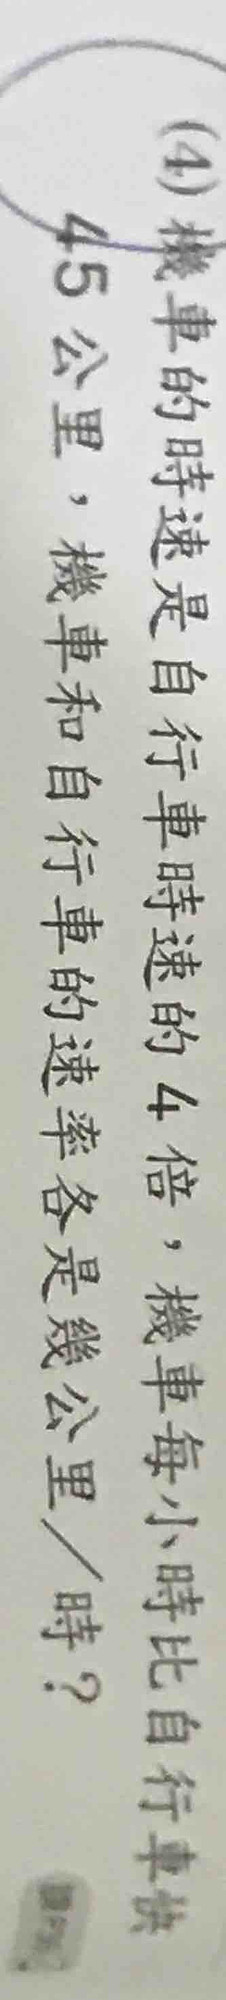 (4) 機車的時速是自行車時速的 4 倍，機車每小時比自行車快
45 公里，機車和自行車的速率各是幾公里／時？